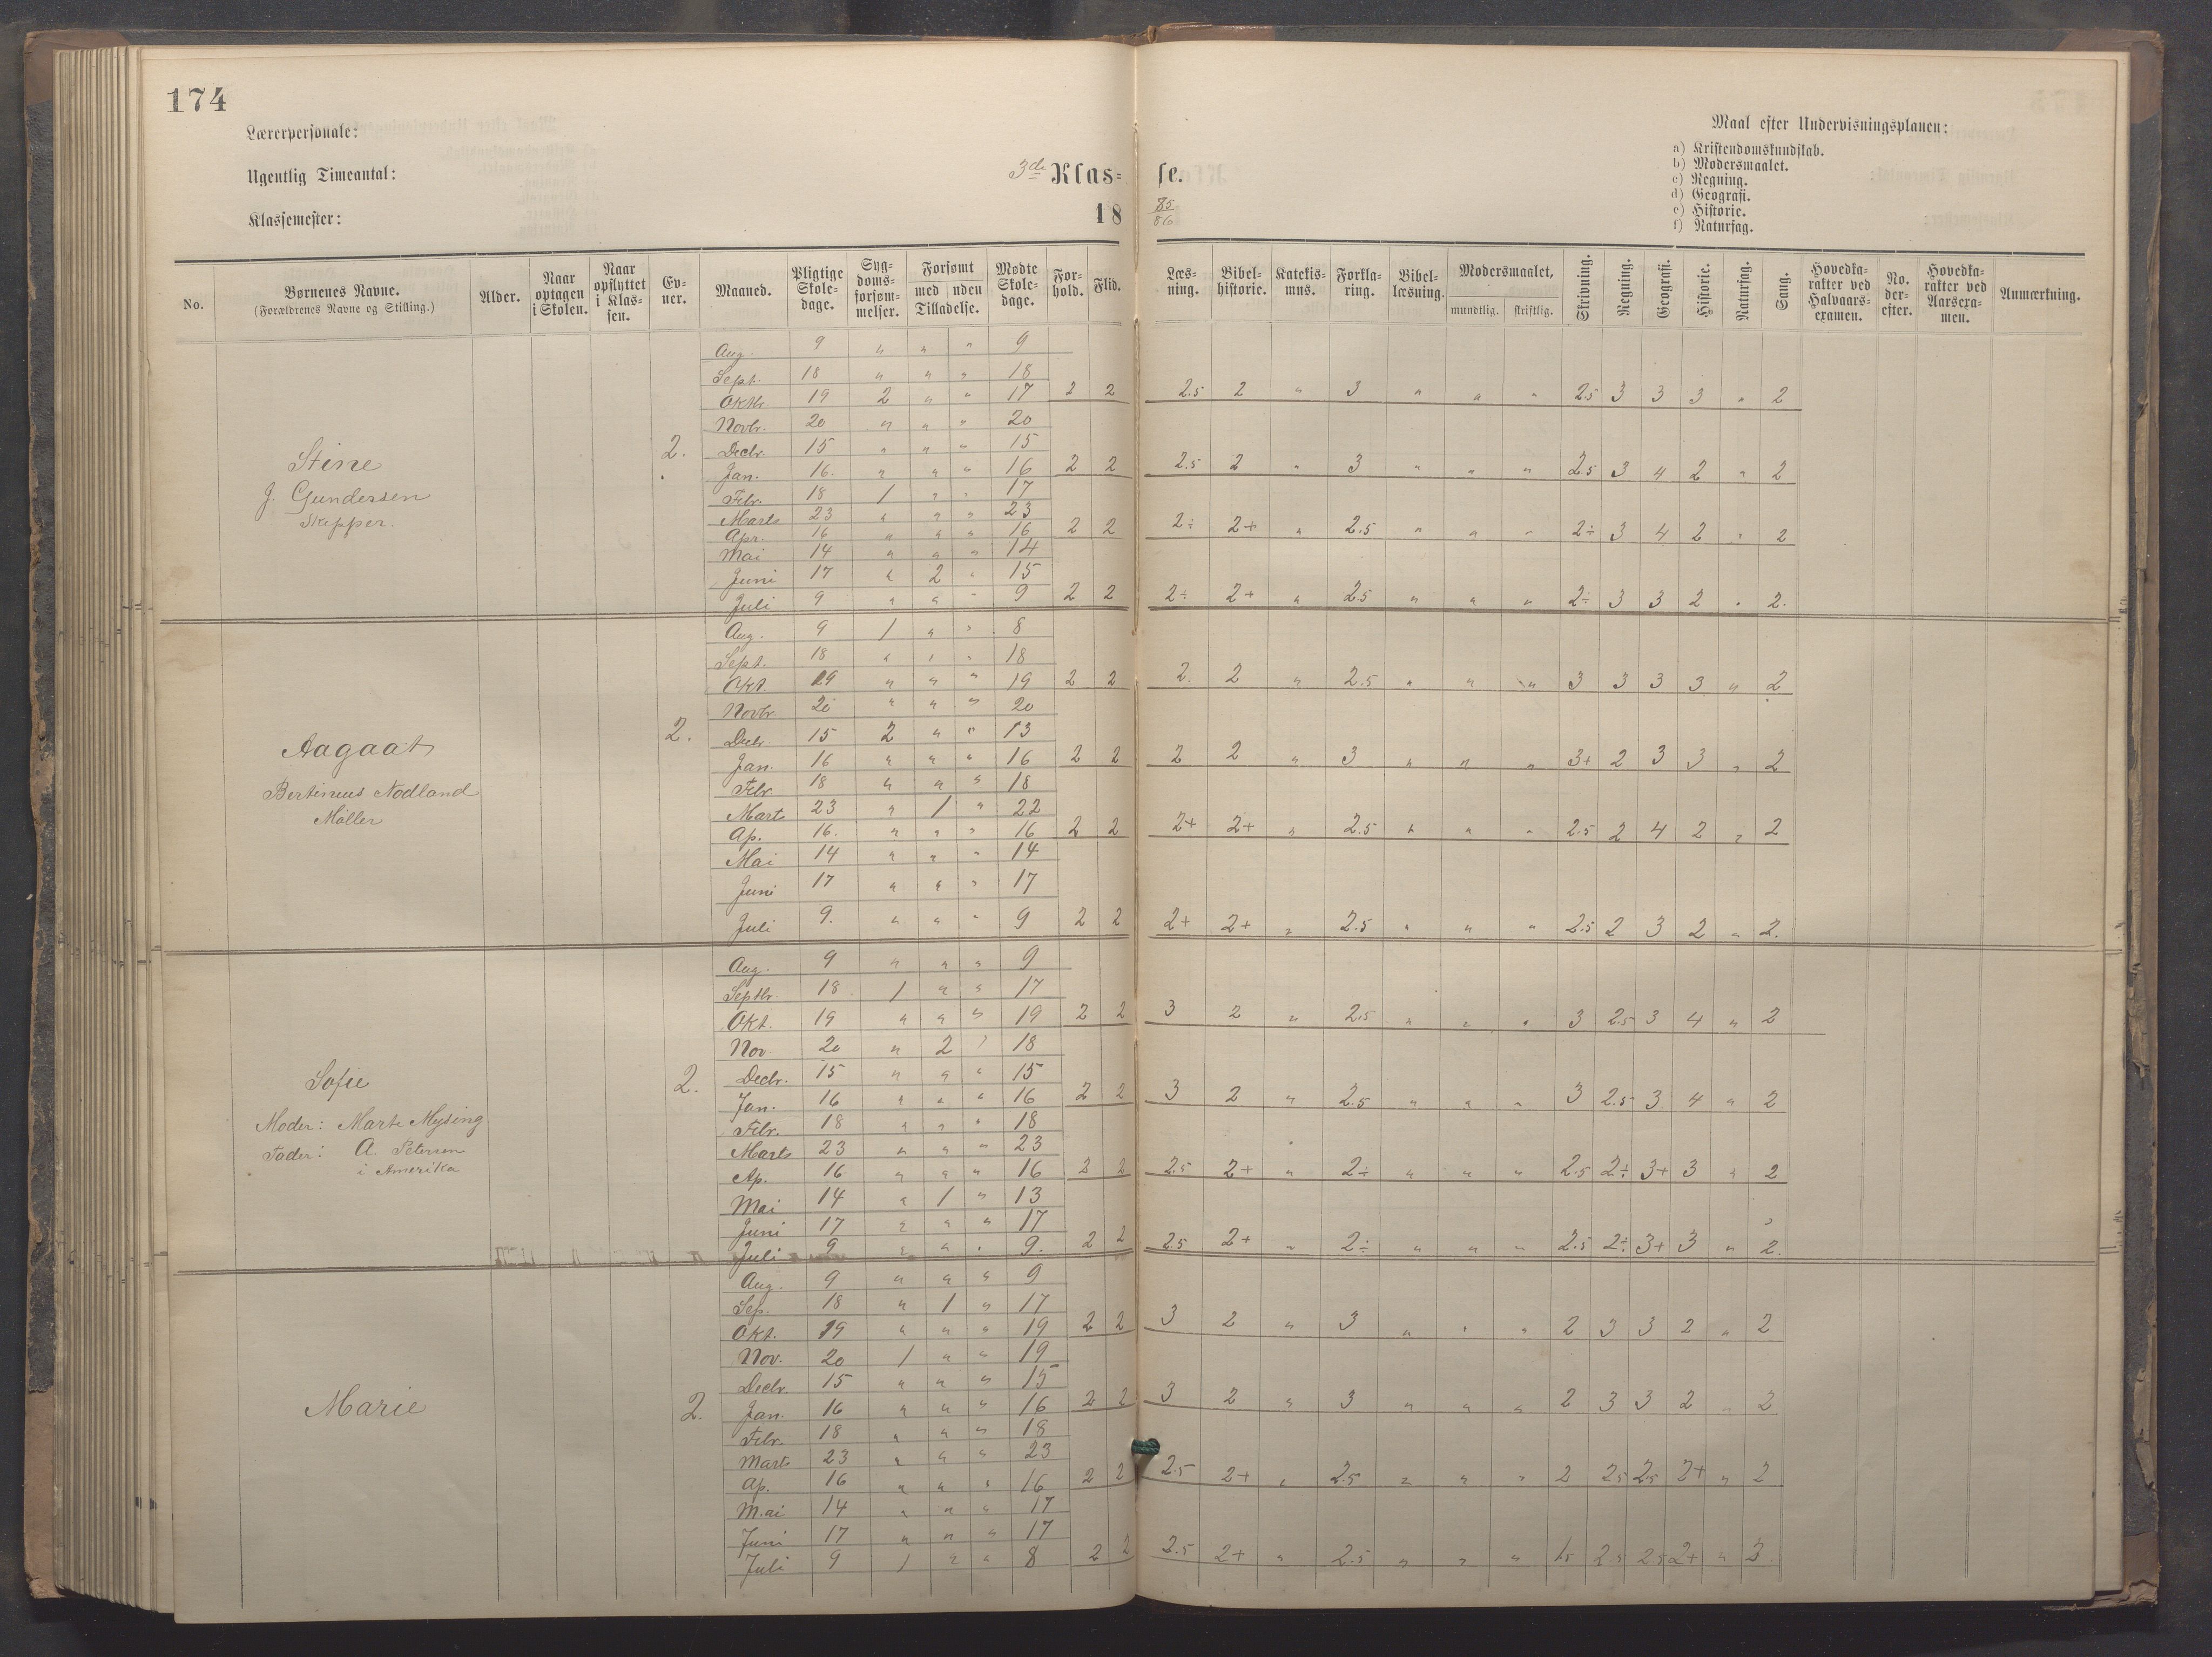 174
Lærerpersonale:
Ugentlig Timeantal:
Klassemester:
3de Klas= se.
18 85/86
Maal efter Undervisningsplanen:
a) Kristendomskundskab.
b) Modersmaalet.
c) Regning.
d) Geografi.
e) Historie.
f) Naturfag.
No. | Børnenes Navne. (Forældrenes Navne og Stilling.) | Alder. | Naar optagen i Skolen. | Naar opflyttet i Klas=sen. | Ev=ner. | Maaned. | Pligtige Skole=dage. | Syg=doms=forsøm=melser. | Forsømt med uden Tilladelse. | Mødte Skole=dage. | For=hold. | Flid. | Læs=ning. | Bibel=historie. | Katekis=mus. | Forkla=ring. | Bibel=læsning. | Modersmaalet, mundtlig. skriftlig. | Skrivning. | Regning. | Geografi. | Historie. | Naturfag. | Sang. | Hovedka=rakter ved Halvaars=examen. | No. der=efter. | Hovedka=rakter ved Aarsexa=men. | Anmærkning.
Stine
J. Gundersen
Skipper.
2.
Aug. 9 " " " 9
Sept. 18 " " " 18
Oktbr 19 2 " " 17 2 2 2.5 2 " 3 " " " 2.5 3 3 3 " 2
Novbr. 20 " " " 20
Decbr. 15 " " " 15
Jan. 16. " " " 16 2 2 2.5 2 " 3 " " " 2.5 3 4 2 " 2
Febr. 18 1 " " 17
Marts 23 " " " 23
Apr. 16 " " " 16 2 2 2÷ 2+ " 2.5 " " " 2÷ 3 4 2 " 2
Mai 14 " " " 14
Juni 17 " 2 " 15
Juli 9 " " " 9 2 2 2÷ 2+ " 2.5 " " " 2÷ 3 3 2 " 2.
Aagaat
Bertinius Nodland
Møller
2.
Aug. 9 1 " " 8
Sept. 18 " " " 18
Okt. 19 " " " 19 2 2 2. 2 " 2.5 " " " 3 3 3 3 " 2
Novbr. 20 " " " 20
Decbr. 15 2 " " 13
Jan. 16 " " " 16 2 2 2 2 " 3 " " " 3+ 2 3 3 " 2
Febr. 18 " " " 18
Marts 23 " 1 " 22
Ap. 16. " " " 16 2 2 2+ 2+ " 2.5 " " " 2.5 2 4 2 " 2
Mai 14 " " " 14
Juni 17 " " " 17
Juli 9. " " " 9 2 2 2+ 2+ " 2.5 " " " 2.5 2 3 2 " 2.
Sofie
Moder: Marte Mysing
Fader: A. Petersen
i Amerika
2.
Aug. 9 " " " 9
Septbr. 18 1 " " 17
Okt. 19 " " " 19 2 2 3 2 " 2.5 " " " 3 2.5 3 4 " 2
Nov 20 " 2 " 18
Decbr. 15 " " " 15
Jan. 16 " " " 16 2 2 3 2 " 2.5 " " " 3 2.5 3 4 " 2
Febr. 18 " " " 18
Marts 23 " " " 23
Ap. 16 " " " 16 2 2 2.5 2+ " 2÷ " " " 2.5 2÷ 3+ 3 " 2
Mai 14 " 1 " 13
Juni 17 " " " 17
Juli 9 " " " 9. 2 2 2.5 2+ " 2÷ " " " 2.5 2÷ 3+ 3 " 2.
Marie
2.
Aug. 9 " " " 9
Sep. 18 " 1 " 17
Okt. 19 " " " 19 2 2 3 2 " 3 " " " 2 3 3 2 " 2
Nov. 20 1 " " 19
Decbr. 15 " " " 15
Jan. 16 " " " 16 2 2 3 2 " 3 " " " 2 3 3 2 " 2
Febr. 18 " " " 18
Marts 23 " " " 23
Ap. 16 " " " 16 2 2 2.5 2+ " 2.5 " " " 2 2.5 2.5 2+ " 2
Mai 14 " " " 17
Juni 17 " " " 17
Juli 9 1 " " 8 2 2 2.5 2+ " 2.5 " " " 1.5 2.5 2.5 2+ " 2